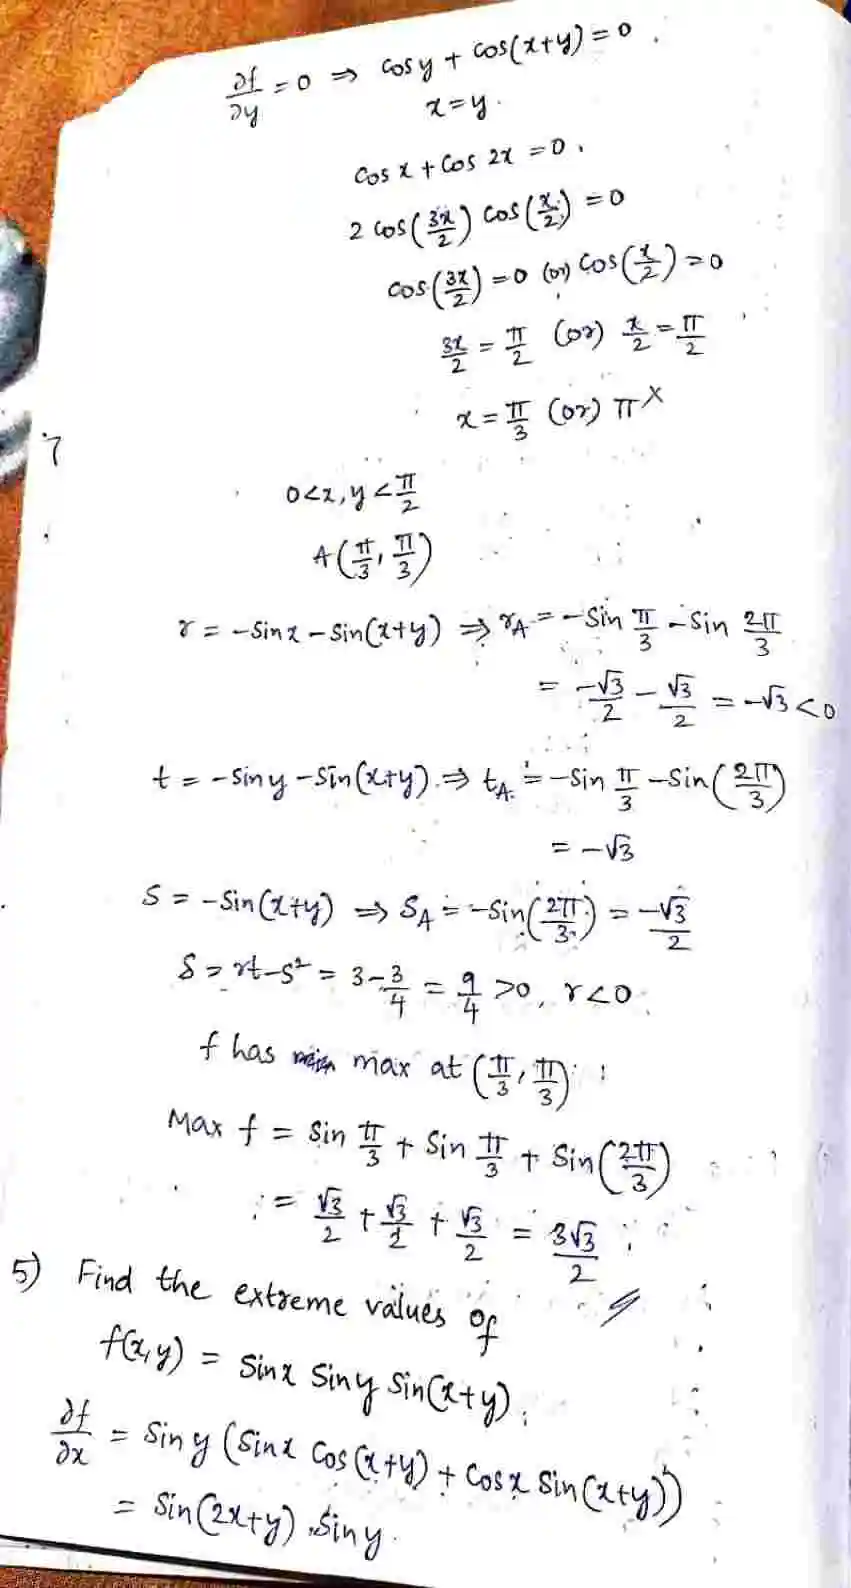 ∂f/∂y = 0 ⇒ cos y + cos(x+y) = 0.
x = y.
cos x + cos 2x = 0.
2 cos(3x/2) cos(x/2) = 0
cos(3x/2) = 0 (or) cos(x/2) = 0
3x/2 = π/2 (or) x/2 = π/2
x = π/3 (or) π ×
0 < x, y < π/2
A(π/3, π/3)
r = -sin x - sin(x+y) ⇒ r_A = -sin π/3 - sin 2π/3
= -√3/2 - √3/2 = -√3 < 0
t = -sin y - sin(x+y) ⇒ t_A = -sin π/3 - sin(2π/3)
= -√3
s = -sin(x+y) ⇒ s_A = -sin(2π/3) = -√3/2
δ = rt - s² = 3 - 3/4 = 9/4 > 0, r < 0
f has max at (π/3, π/3)
Max f = sin π/3 + sin π/3 + sin(2π/3)
= √3/2 + √3/2 + √3/2 = 3√3/2
5) Find the extreme values of
f(x,y) = sin x sin y sin(x+y).
∂f/∂x = sin y (sin x cos(x+y) + cos x sin(x+y))
= sin(2x+y) . sin y.